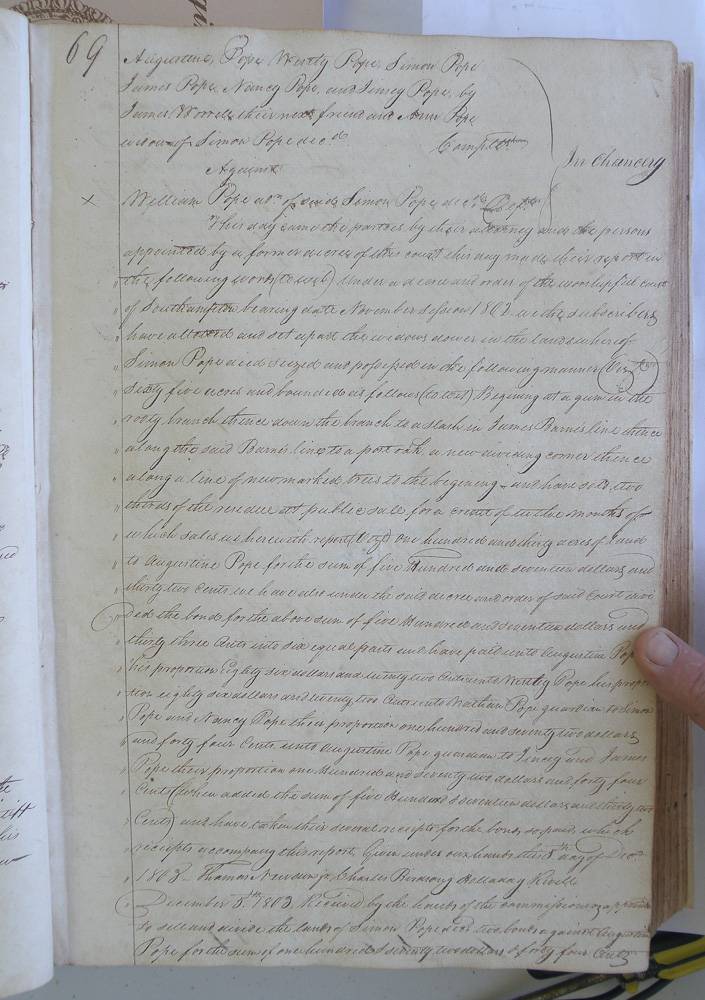 69
Augustine Pope Westly Pope Simon Pope
James Pope, Nancy Pope, and Jincy Pope, by
James Worrell their next friend and Ann Pope
widow of Simon Pope decd
Complts
In Chancery
Against
x William Pope adm of said Simon Pope, decd Deft
This day came the parties by their attorney and the persons
appointed by a former decree of this court this day made their report in
the following words (to wit) Under a decree and order of the worshipful court
of Southampton bearing date November Session 1803 we the subscribers
have allotted and set apart the widows dower in the lands whereof
Simon Pope died seized and possessed in the following manner (Viz)
Sixty five acres and bounded as follows (to wit) Begining at a gum in the
rooty branch thence down the branch to a slash in James Barnes line thence
along the said Barnes line to a post oak, a new dividing corner thence
along a line of new marked trees to the begining and have sold two
thirds of the residue at public sale for a credit of twelve months of
which sales we herewith report (Viz) One hundred and thirty acres of Land
to Augustine Pope for the sum of five Hundred and seventeen dollars and
thirty two Cents we have also under the said decree and order of said Court divi
ded the bonds for the above sum of five Hundred and seventeen dollars and
thirty three Cents into six equal parts and have paid unto Augustine Pope
his proportion Eighty six dollars and twenty two Cents unto Westly Pope his propor
tion eighty six dollars and twenty two Cents unto Nathan Pope guardian to Simon
Pope and Nancy Pope their proportion one hundred and seventy two dollars
and forty four Cents unto Augustine Pope guardian to Jincy and James
Pope their proportion one Hundred and seventy two dollars and forty four
Cents (when added the sum of five Hundred & seventeen dollars and thirty two
Cents) and have taken their several receipts for the bonds so paid, which
receipts accompany this report. Given under our hands this 5th day of Decr
1803 Thomas Newsum jr, Charles Birdsong Holladay Revell
December 5th 1803 Received by the hands of the commissioners appointed
to sell and divide the lands of Simon Pope decd two bonds against Augustine
Pope for the sum of one hundred & seventy two dollars & forty four Cents